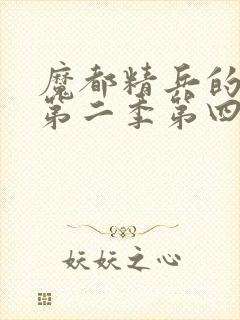 魔都精兵的
第二季第四
妖妖之心